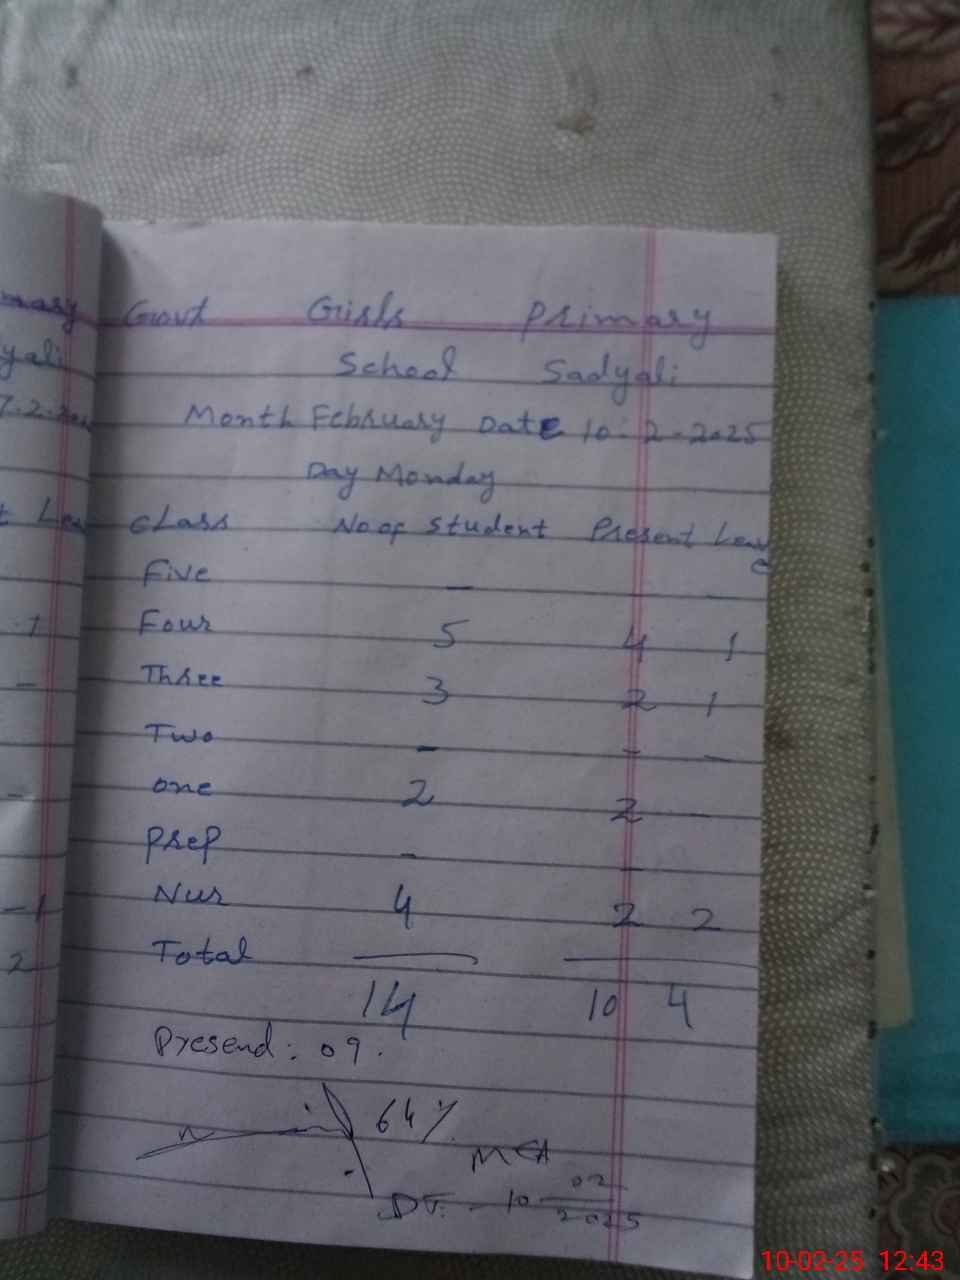 mary
yali
7.2.202
t Lea
1
-
-
-1
2
Govt Girls Primary
School Sadyali
Month February Date 10-2-2025
Day Monday
class No of Student Present Leave
Five - -
Four 5 4 1
Three 3 2 1
Two - - -
one 2 2 -
prep - -
Nur 4 2 2
Total
14 10 4
Presend: 09.
64%
MEA
DT. - 10 02 2025
10-02-25 12:43